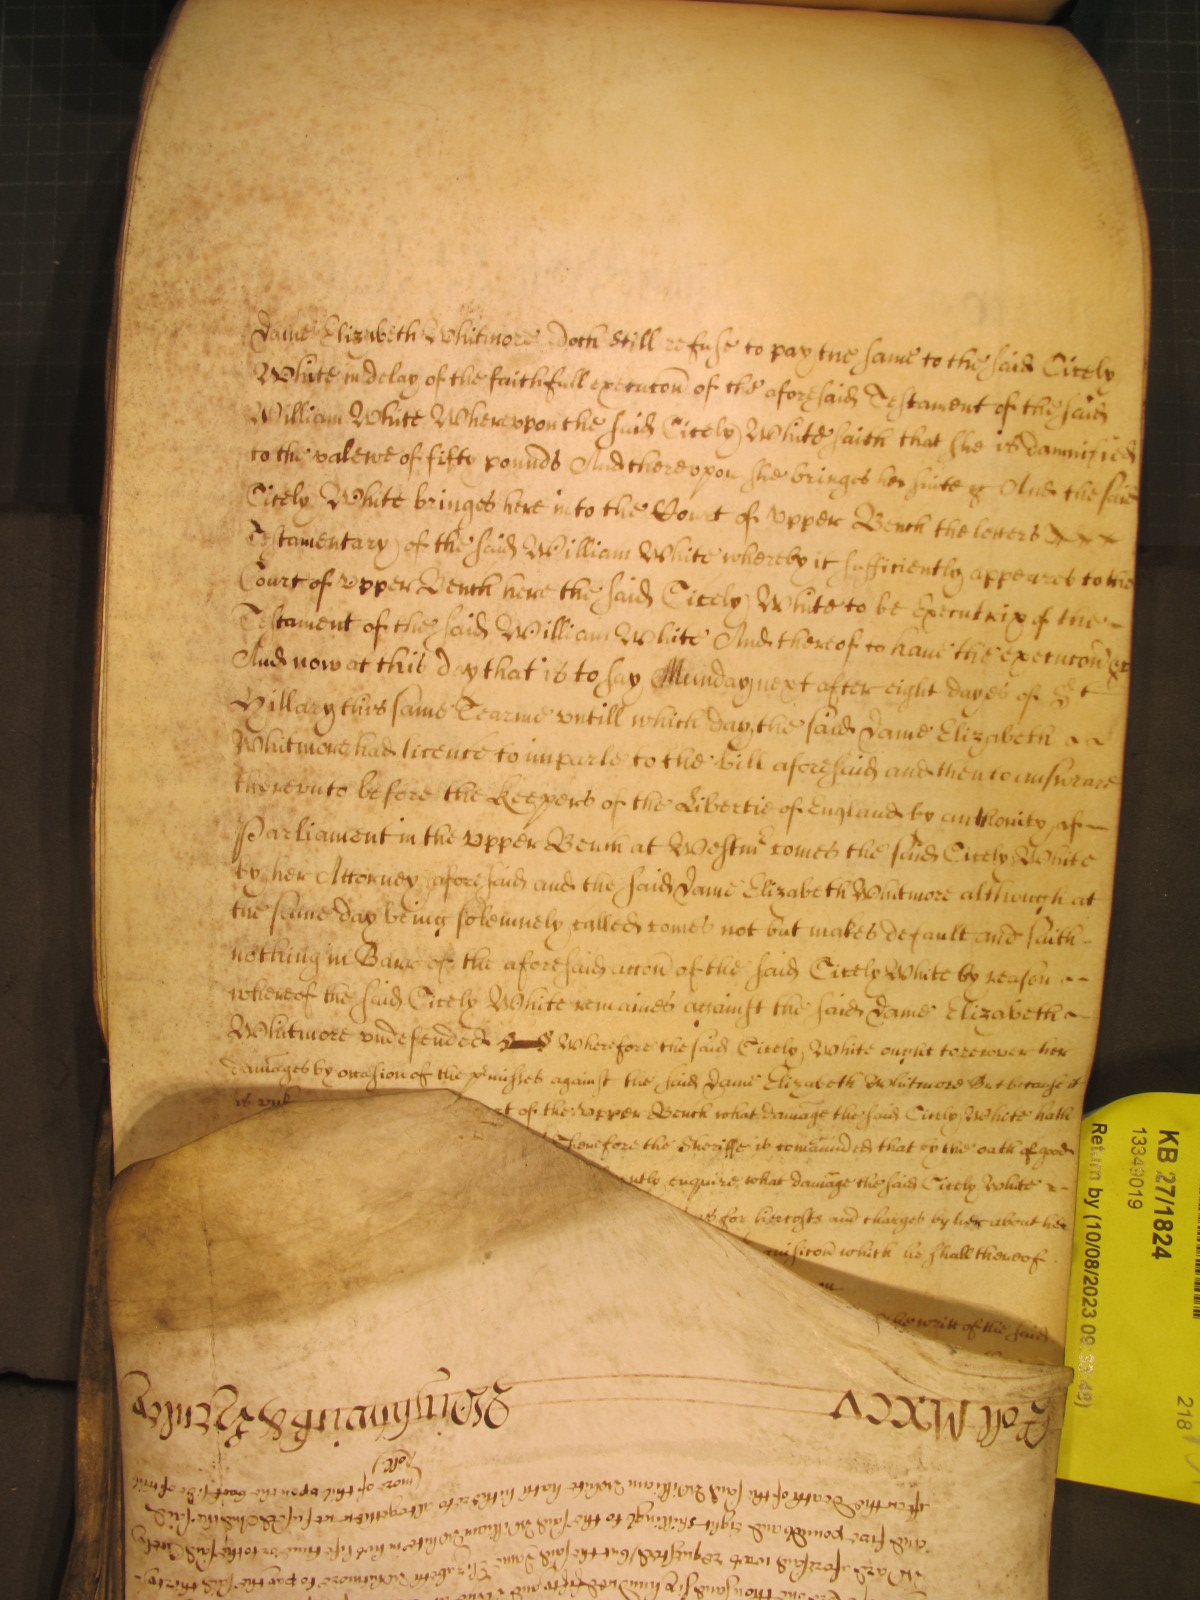 Dame Elizabeth Whitmore Doth still refuse to pay the same to the said Cicely
White in delay of the faithfull execucon of the aforesaid Testament of the said
William White Whereupon the said Cicely White saith that she is damnified
to the valewe of fifty pounds And thereupon she bringes her suite &c And the said
Cicely White bringes here into the Court of Upper Bench the letters
Testamentary of the said William White whereby it sufficiently appeares to the
Court of upper Bench here the said Cicely White to be Executrix of the
Testament of the said William White And thereof to have the execucon &c
And now at this day that is to say Munday next after eight dayes of St
Hillary this same Tearme untill which day the said Dame Elizabeth
Whitmore had licence to imparle to the bill aforesaid and then to answeare
thereunto before the Keepers of the Libertie of England by authority of
Parliament in the Upper Bench at Westmr comes the said Cicely White
by her Attorney aforesaid and the said Dame Elizabeth Whitmore although at
the same day being solemnely called comes not but makes default and saith
nothing in Barre of the aforesaid accon of the said Cicely White by reason
whereof the said Cicely White remaines against the said Dame Elizabeth
Whitmore undefended Wherefore the said Cicely White ought to recover her
damages by occasion of the pmisses against the said Dame Elizabeth Whitmore But because it
is of the upper Bench what damage the said Cicely White hath
Therefore the Sheriffe is comaunded that by the oath of good
enquire what damage the said Cicely White
for her costs and charges by her about her
which he shall thereof
the writt of the said
KB 27/1824
13349019
Return by (10/08/2023
218
Roll MXXV
more of this upon the back side of this
Roll
after the death of the said William White hath hitherto altogether refused And the said
and five pounds and eight shillings to the said William White in his life time or to the said Cicely
aforesaid was requested but the said Dame Elizabeth Whitmore to pay the said thirty
one thousand six hundred fifty and